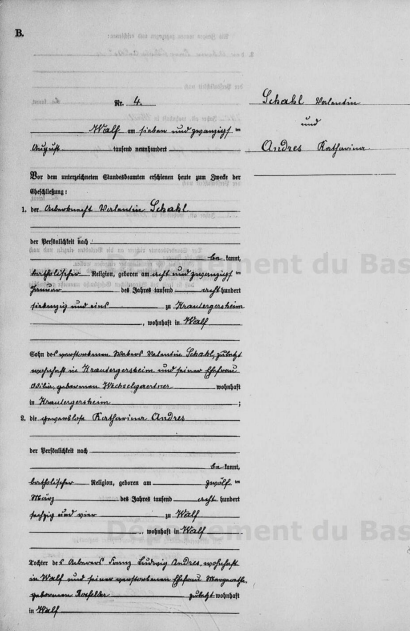 B.
Nr. 4.
Schahl Valentin
und
Andres Katharina
Walf am sieben und zwanzigsten
August tausend neunhundert
Vor dem unterzeichneten Standesbeamten erschienen heute zum Zwecke der
Eheschließung:
1. der Ackerknecht Valentin Schahl
der Persönlichkeit nach
be kannt,
katholischer Religion, geboren am acht und zwanzigsten
Januar des Jahres tausend acht hundert
siebenzig und eins zu Krautergersheim
, wohnhaft in Walf
Sohn des verstorbenen Webers Valentin Schahl, zuletzt
wohnhaft in Krautergersheim und seiner Ehefrau
Odilia, geborenen wohnhaft
in Krautergersheim ;
2. die gewerblose Katharina Andres
der Persönlichkeit nach
be kannt,
katholischer Religion, geboren am zwölften
März des Jahres tausend acht hundert
sechzig und vier zu Walf
, wohnhaft in Walf
Tochter des Ackerers Franz Ludwig Andres, wohnhaft
in Walf und seiner verstorbenen Ehefrau
geborenen zuletzt wohnhaft
in Walf
Département du Bas
Département du Bas